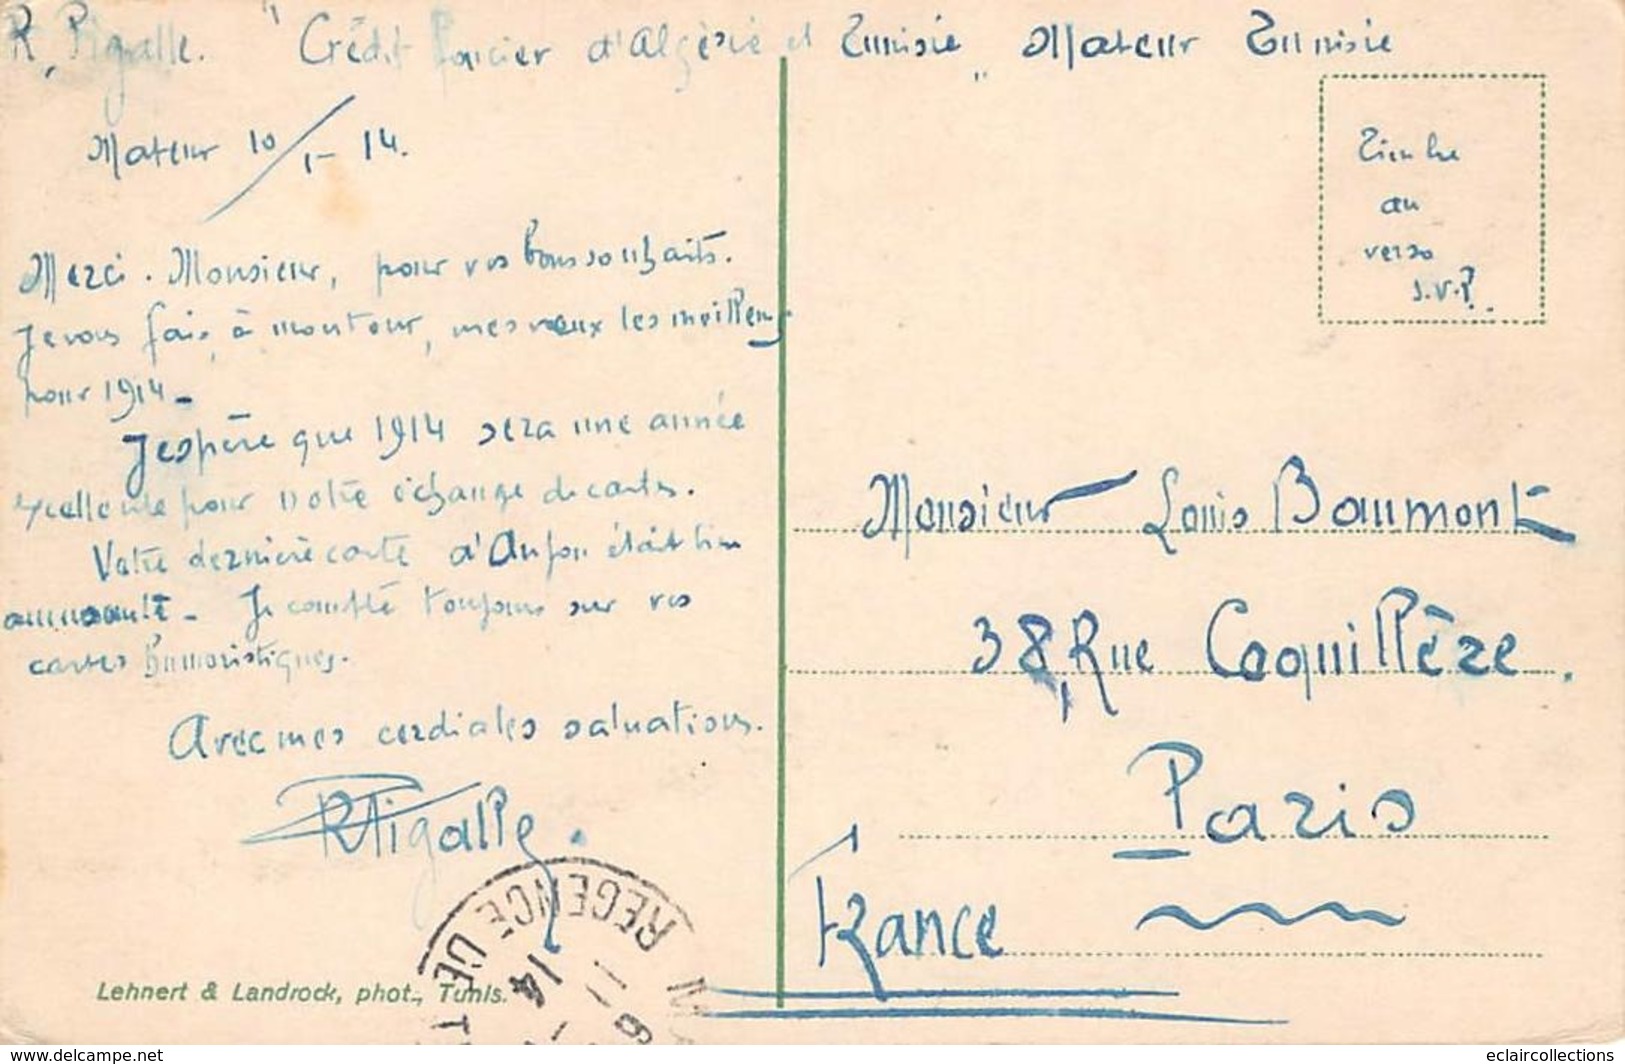 R. Pigalle. "Crédit Foncier d'Algérie et Tunisie" Mateur Tunisie
Mateur 10/1-14.
Merci. Monsieur, pour vos bons souhaits.
Je vous fais, à mon tour, mes vœux les meilleurs
pour 1914 -
J'espère que 1914 sera une année
excellente pour notre échange de cartes.
Votre dernière carte d'Anjou était bien
amusante - Je compte toujours sur vos
cartes humoristiques.
Avec mes cordiales salutations.
R Pigalle.
Lehnert & Landrock, phot., Tunis.
REGENCE DE T
14
Timbre
au
verso
S.V.P.
Monsieur Louis Baumont
38, Rue Coquillère.
Paris
France
www.delcampe.net
eclaircollections